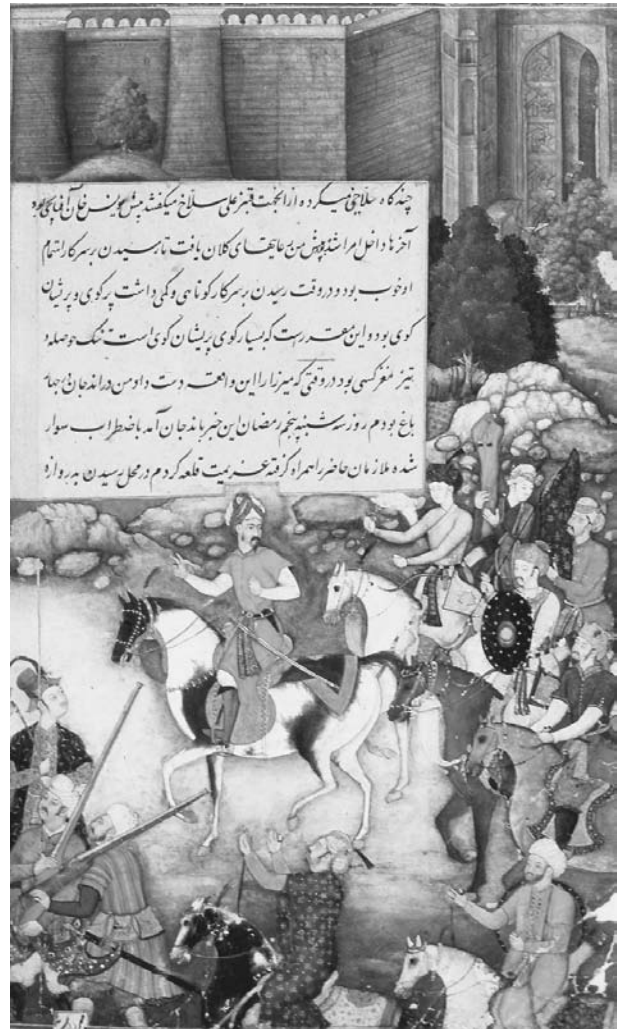 چند گاه سلاخی میکرده از انجهت قنبر علی سلاخ میکفتند پیش یونس خان آفتابچی بود
آخرها داخل امرا شد و پیش من رعایتهای کلان یافت تا رسیدن بر سر کار اهتمام
او خوب بود و در وقت رسیدن بر سر کار کوتاهی و کمی داشت پر کوی و پریشان
کوی بود و این مقررست که بسیار کوی پریشان کوی است تنک حوصله و
تیز مغز کسی بود در وقتی که میرزا را این واقعه دست داد من در اندجان در چهار
باغ بودم روز سه شنبه پنجم رمضان این خبر باندجان آمد باضطراب سوار
شده ملازمان حاضر را همراه کرفته عزیمت قلعه کردم در محل رسیدن بدروازه